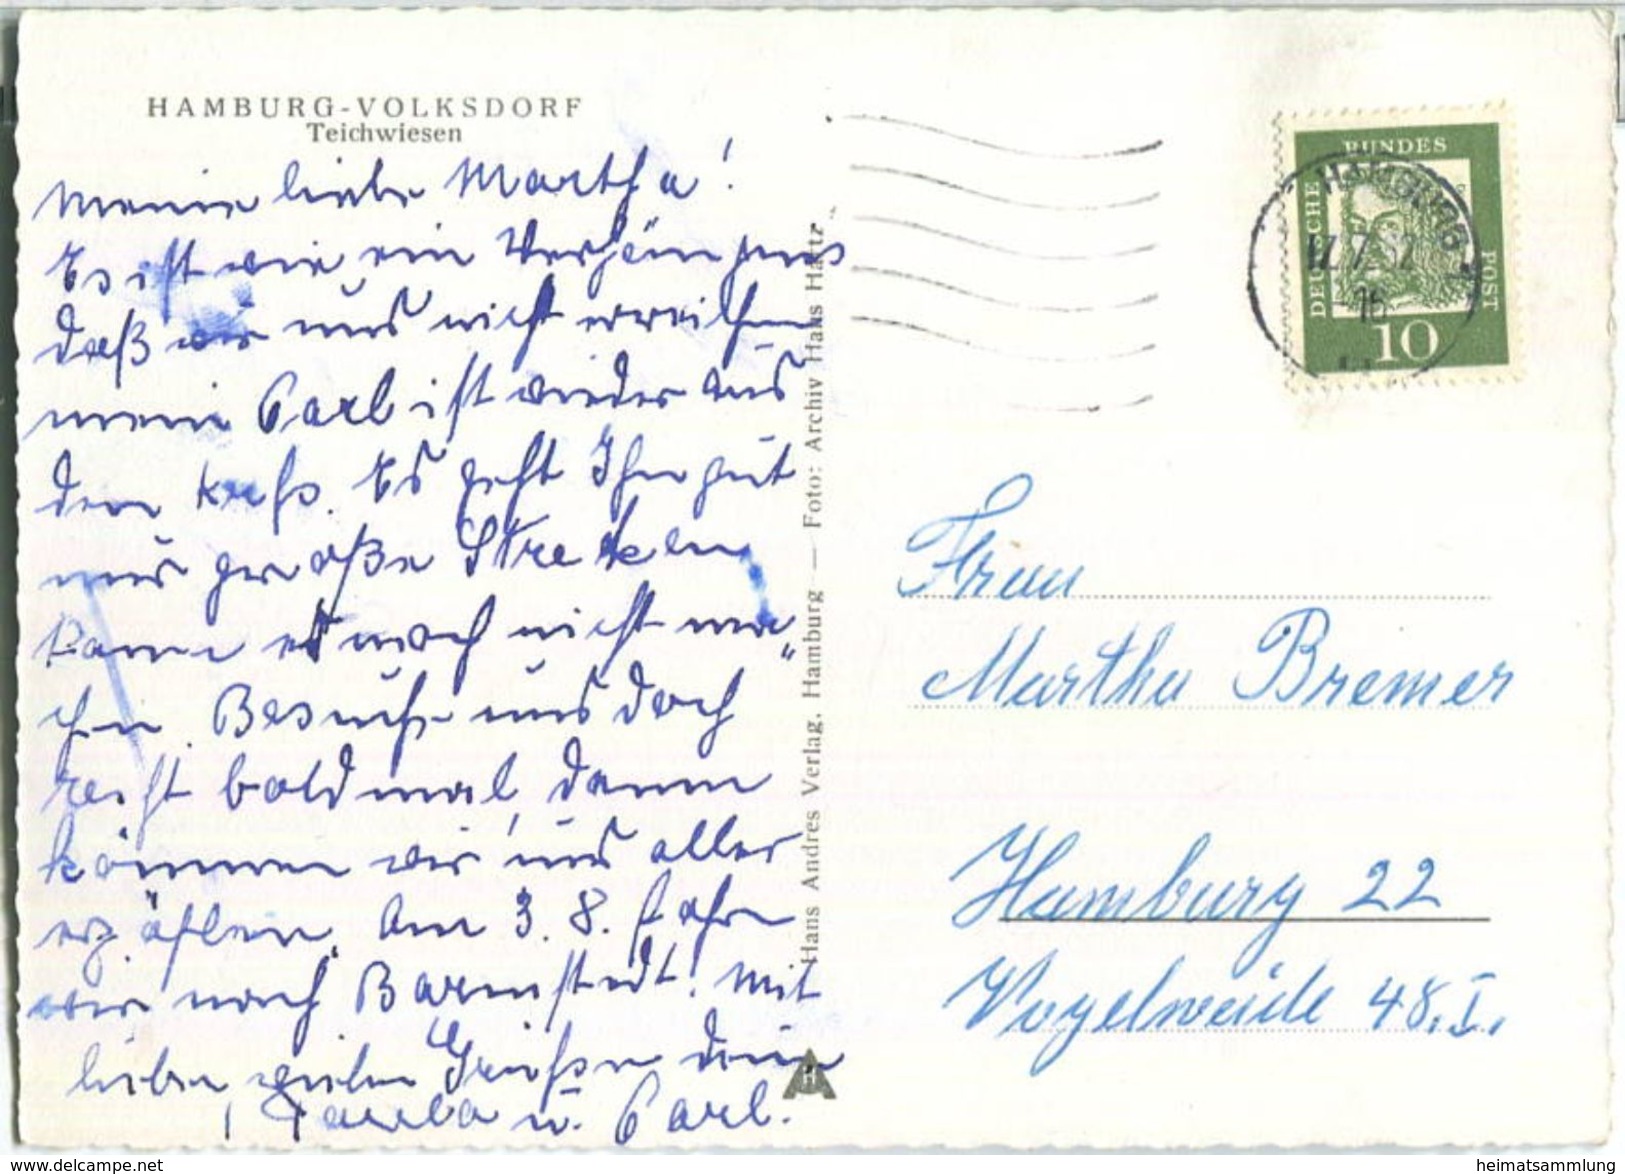 HAMBURG-VOLKSDORF
Teichwiesen
Meine liebe Martha!
Es ist wie ein Verhängnis
daß wir uns nicht erreichen
mein Carl ist wieder aus
dem Krhs. Es geht Ihm gut
nur große Strecken
kann er noch nicht ma„
chen. Besuche uns doch
recht bald mal, dann
können wir uns alles
erzählen. Am 3. 8. fahren
wir nach Barmstedt. Mit
lieben vielen Grüßen deine
Paula u. Carl.
Hans Andres Verlag, Hamburg — Foto: Archiv Hans Hartz
DEUTSCHE
BUNDES
POST
10
HAMBURG
17.7.62
16
Frau
Martha Bremer
Hamburg 22
Vogelweide 48. I.
H
www.delcampe.net
heimatsammlung